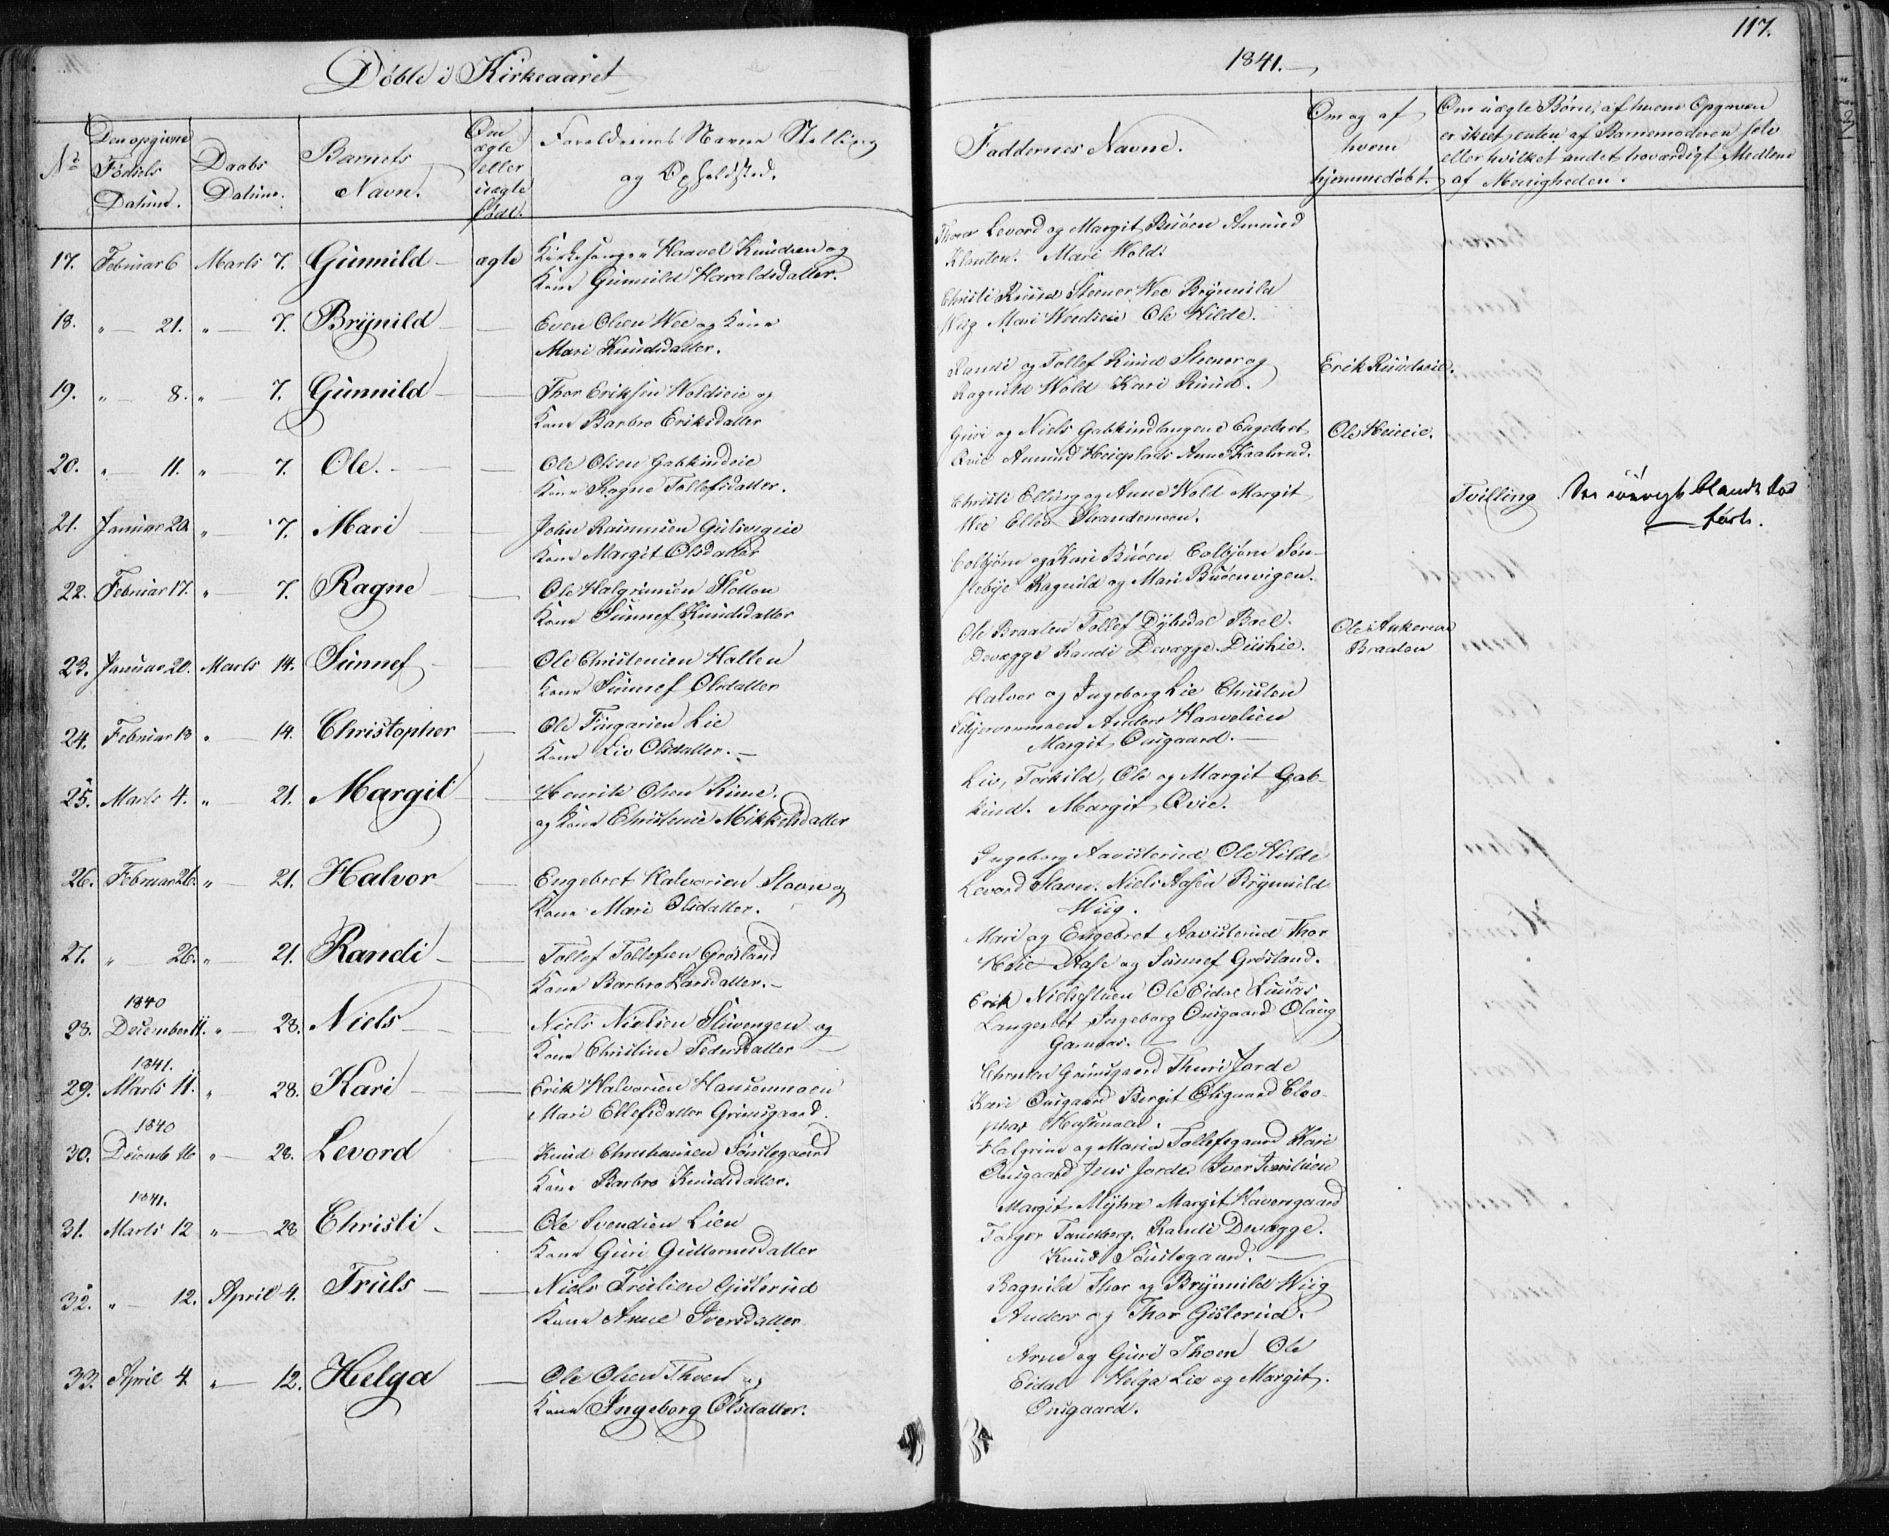 Døbte i Kirkeaaret
1841.
117.
No
Den opgivne Fødsels Datum.
Daabs Datum.
Barnets Navn.
Om ægte eller uægte
Forældrenes Navne Stilling og Opholdsted.
Faddernes Navne.
Om og af hvem hjemmedøbt.
Om uægte Børn, af hvem Opgaven
er skeet, enten af Barnemoderen selv
eller hvilket andet troværdigt Medlem
af Menigheden.
17. Februar 6 Marts 7. Gunnild ægte Kirkesanger Haavel Knudsen og
Kone Gunnild Haraldsdatter.
Levord og Margit Buøen
Mari Wold.
18. " 21. " 7. Brynild Even Olsen Wee og Kone
Mari Knudsdatter.
Christi Ruud Steener Wee Brynnild
Wiig Mari Ole Hilde.
19. " 8. " 7. Gunnild Thor Eriksen Woldseie og
Kone Barbro Eriksdatter
Randi og Tollef Ruud Steener og
Ragnild Wold Kari Ruud.
Erik Ruudseie.
20. " 11. " 7. Ole. Ole Olsen Gabkindeie
Kone Ragne Tollefsdatter.
Guri og Niels Engebret
Qvie Amund Anne
Ole
21. Januar 20. " 7. Mari John
Kone Margit Olsdatter
Christi Elling og Anne Wold Margit
Wee Ellen Strandemoen.
Tvilling
22. Februar 17. " 7. Ragne Ole Halgrimsen Slotten
Kone Sünnef Knudsdatter
Colbjørn og Kari Buøen Colbjørn Søn-
stebye Ragnild og Mari Buøenvigen.
23. Januar 20. Marts 14. Sünnef Ole Christensen Hallen
Kone Sünnef Olsdatter
Ole Braaten Tollef Dybsdal
Devegge Randi Devægge
Ole
Braaten
24. Februar 13 " 14. Christopher Ole Fingarsen Lie
Kone Liv Olsdatter.
Halvor og Ingeborg Lie Christen
Anders Haavelsen
Margit Onsgaard.
25. Marts 4. " 21. Margit Henrik Olsen Rime.
og Kone Christense Mikkelsdatter
Liv, Torkild, Ole og Margit Gab-
kind. Margit Qvie.
26. Februar 26. " 21. Halvor Engebret Halvorsen Stavn og
Kone Mari Olsdatter.
Ingeborg Aavesterud Ole Hilde
Levord Stavn. Niels Aasen Brynnild
Wiig.
27. " 26. " 21. Randi Tollef Tollefsen Grøsland
Kone Barbro Larsdatter.
Mari og Engebret Aavesterud Thor
Aase og Sünnef Grøsland.
1840
28. December 11. " 28. Niels Niels Nielsen Stuvengen og
Kone Christine Pedersdatter
Erik Ole Eidal
Ingeborg Onsgaard Olaug
Garnaas.
1841.
29. Marts 11. " 28. Kari Erik Halvorsen Hansemoen
Mari Ellefsdatter Grimsgaard.
Christen Grimsgaard Thuri Jorde
Kari Onsgaard Bergit Olsgaard Eleo-
1840
30. Decemb 16 " 28. Levord Knud Christiansen Sønstegaard
Kone Barbro Knudsdatter.
Halgrim og Maria Tollefsgaard Kari
Onsgaard Jens Jorde Iver
1841.
31. Marts 12 " 28 Christi Ole Svendsen Lien
Kone Guri Guttormsdatter
Margit Myhre Margit Haversgaard
Randi Devægge.
Knud Sønstegaard.
32. " 12. April 4. Truls Niels Trulsen Gisterud
Kone Anne Iversdatter
Ragnild Thor og Brynnild Wiig
Anders og Thor Gisterud.
33. April 4. " 12. Helga Ole Olsen Thoen og
Kone Ingeborg Olsdatter.
Arne og Guri Thoen Ole
Eidal Helga Lie og Margit
Onsgaard.